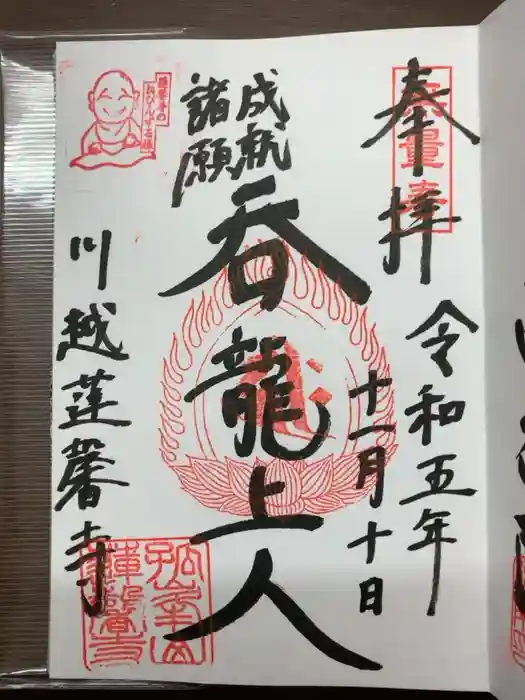 奉拝
無量壽
令和五年
十一月十日
諸願
成就
呑龍上人
川越蓮馨寺
蓮馨寺の
おびんずる様